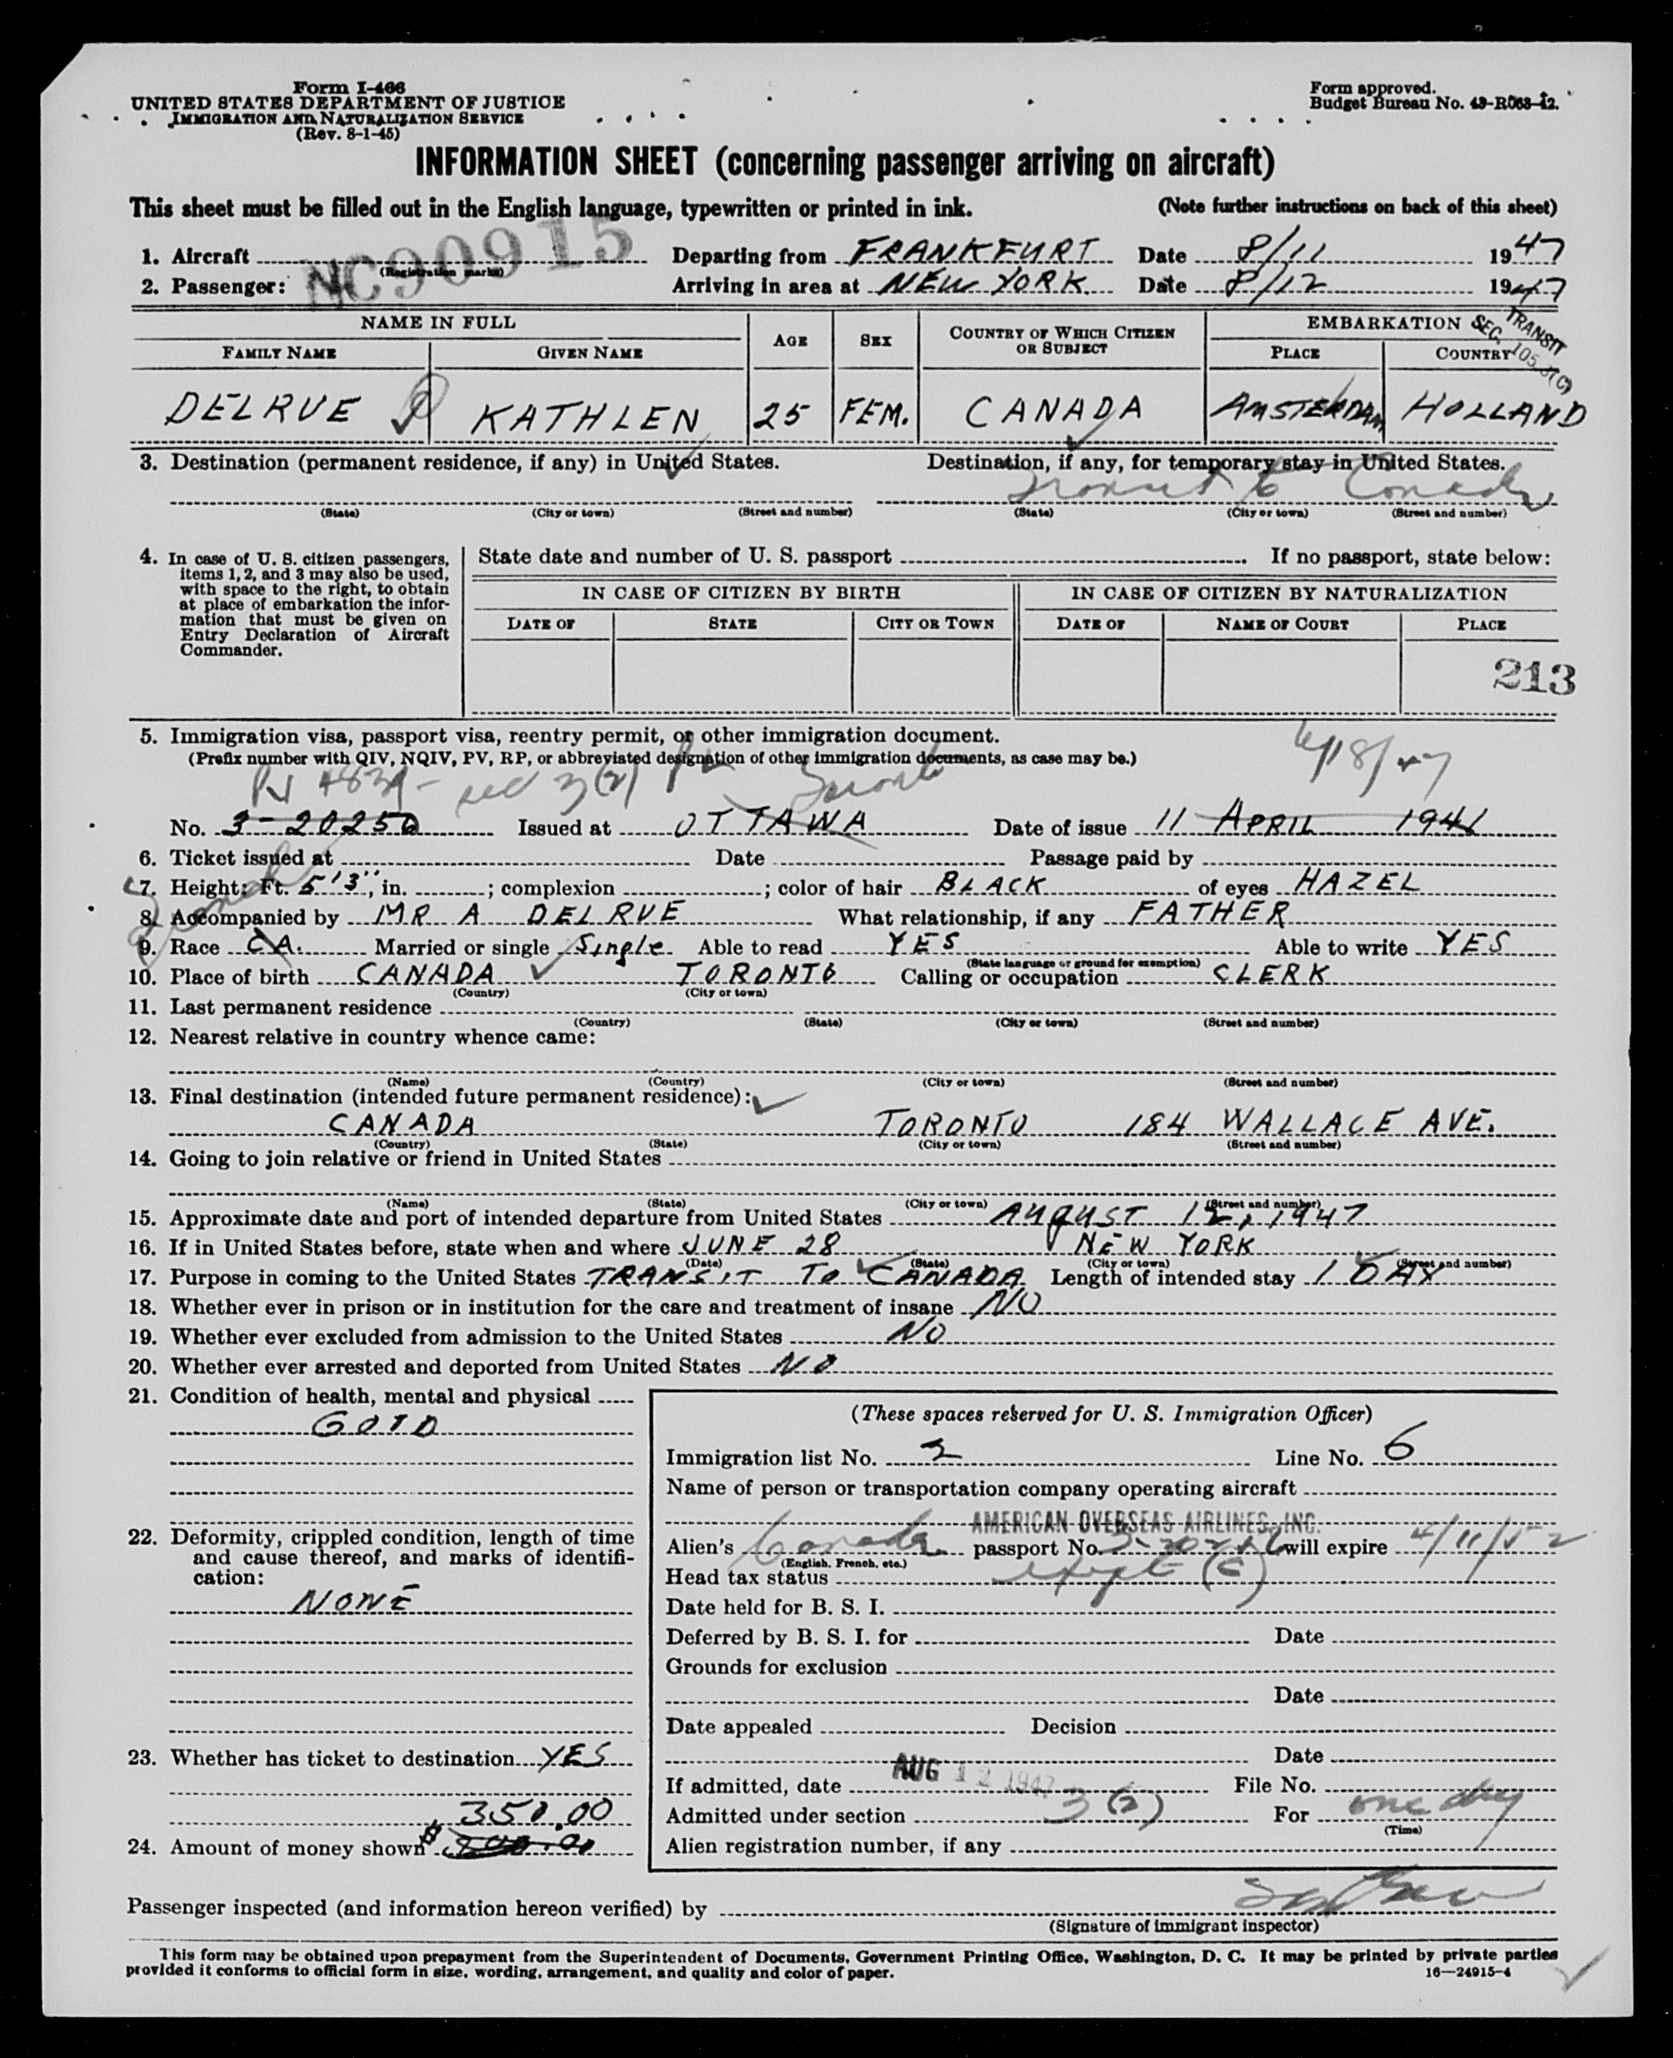 Form I-466
UNITED STATES DEPARTMENT OF JUSTICE
IMMIGRATION AND NATURALIZATION SERVICE
(Rev. 8-1-45)
Form approved.
Budget Bureau No. 43-R063-42.
INFORMATION SHEET (concerning passenger arriving on aircraft)
This sheet must be filled out in the English language, typewritten or printed in ink. (Note further instructions on back of this sheet)
1. Aircraft NC90915 (Registration marks) Departing from FRANKFURT Date 8/11 1947
2. Passenger: Arriving in area at NEW YORK Date 8/12 1947
TRANSIT
SEC. 105.3(C)
NAME IN FULL AGE SEX COUNTRY OF WHICH CITIZEN OR SUBJECT EMBARKATION
FAMILY NAME GIVEN NAME PLACE COUNTRY
DELRUE KATHLEN 25 FEM. CANADA AMSTERDAM HOLLAND
3. Destination (permanent residence, if any) in United States. Destination, if any, for temporary stay in United States.
Transit to Canada
(State) (City or town) (Street and number) (State) (City or town) (Street and number)
4. In case of U. S. citizen passengers, items 1, 2, and 3 may also be used, with space to the right, to obtain at place of embarkation the information that must be given on Entry Declaration of Aircraft Commander.
State date and number of U. S. passport If no passport, state below:
IN CASE OF CITIZEN BY BIRTH IN CASE OF CITIZEN BY NATURALIZATION
DATE OF STATE CITY OR TOWN DATE OF NAME OF COURT PLACE
213
5. Immigration visa, passport visa, reentry permit, or other immigration document.
(Prefix number with QIV, NQIV, PV, RP, or abbreviated designation of other immigration documents, as case may be.)
sec 3(2) Toronto 6/18/47
No. 3-20256 Issued at OTTAWA Date of issue 11 APRIL 194
6. Ticket issued at Date Passage paid by
7. Height: Ft. 5'3", in. ; complexion ; color of hair BLACK of eyes HAZEL
8. Accompanied by MR A DELRUE What relationship, if any FATHER
9. Race CA. Married or single Single Able to read YES Able to write YES
(State language or ground for exemption)
10. Place of birth CANADA TORONTO Calling or occupation CLERK
(Country) (City or town)
11. Last permanent residence
(Country) (State) (City or town) (Street and number)
12. Nearest relative in country whence came:
(Name) (Country) (City or town) (Street and number)
13. Final destination (intended future permanent residence):
CANADA TORONTO 184 WALLACE AVE.
(Country) (State) (City or town) (Street and number)
14. Going to join relative or friend in United States
(Name) (State) (City or town) (Street and number)
15. Approximate date and port of intended departure from United States AUGUST 12, 1947
16. If in United States before, state when and where JUNE 28 NEW YORK
(Date) (State) (City or town) (Street and number)
17. Purpose in coming to the United States TRANSIT TO CANADA Length of intended stay 1 DAY
18. Whether ever in prison or in institution for the care and treatment of insane NO
19. Whether ever excluded from admission to the United States NO
20. Whether ever arrested and deported from United States NO
21. Condition of health, mental and physical
GOOD
22. Deformity, crippled condition, length of time and cause thereof, and marks of identification:
NONE
23. Whether has ticket to destination YES
350.00
24. Amount of money shown $
(These spaces reserved for U. S. Immigration Officer)
Immigration list No. 2 Line No. 6
Name of person or transportation company operating aircraft
AMERICAN OVERSEAS AIRLINES, INC.
Alien's Canada passport No. 3-20256 will expire 4/11/52
(English, French, etc.)
Head tax status
Date held for B. S. I.
Deferred by B. S. I. for Date
Grounds for exclusion
Date
Date appealed Decision
Date
If admitted, date AUG 12 1947 File No.
Admitted under section 3(2) For one day
(Time)
Alien registration number, if any
Passenger inspected (and information hereon verified) by
(Signature of immigrant inspector)
This form may be obtained upon prepayment from the Superintendent of Documents, Government Printing Office, Washington, D. C. It may be printed by private parties
provided it conforms to official form in size, wording, arrangement, and quality and color of paper. 16—24915-4